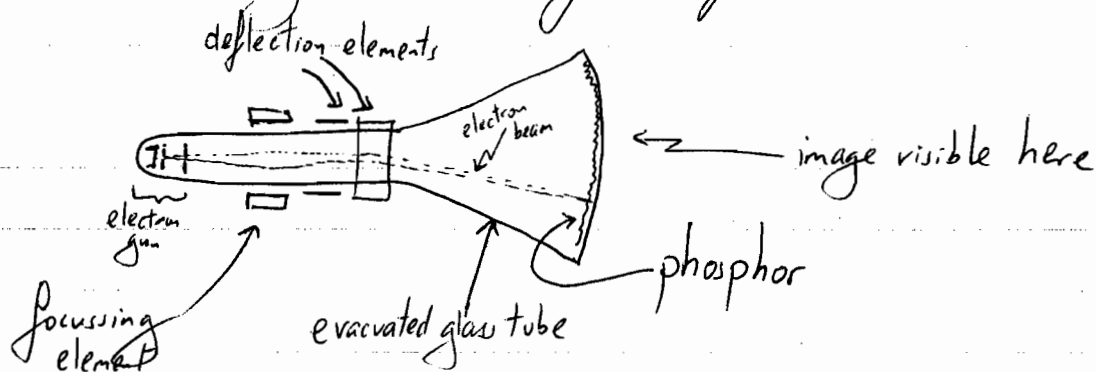 deflection elements
electron
beam
image visible here
electron
gun
phosphor
focussing
element
evacuated glass tube